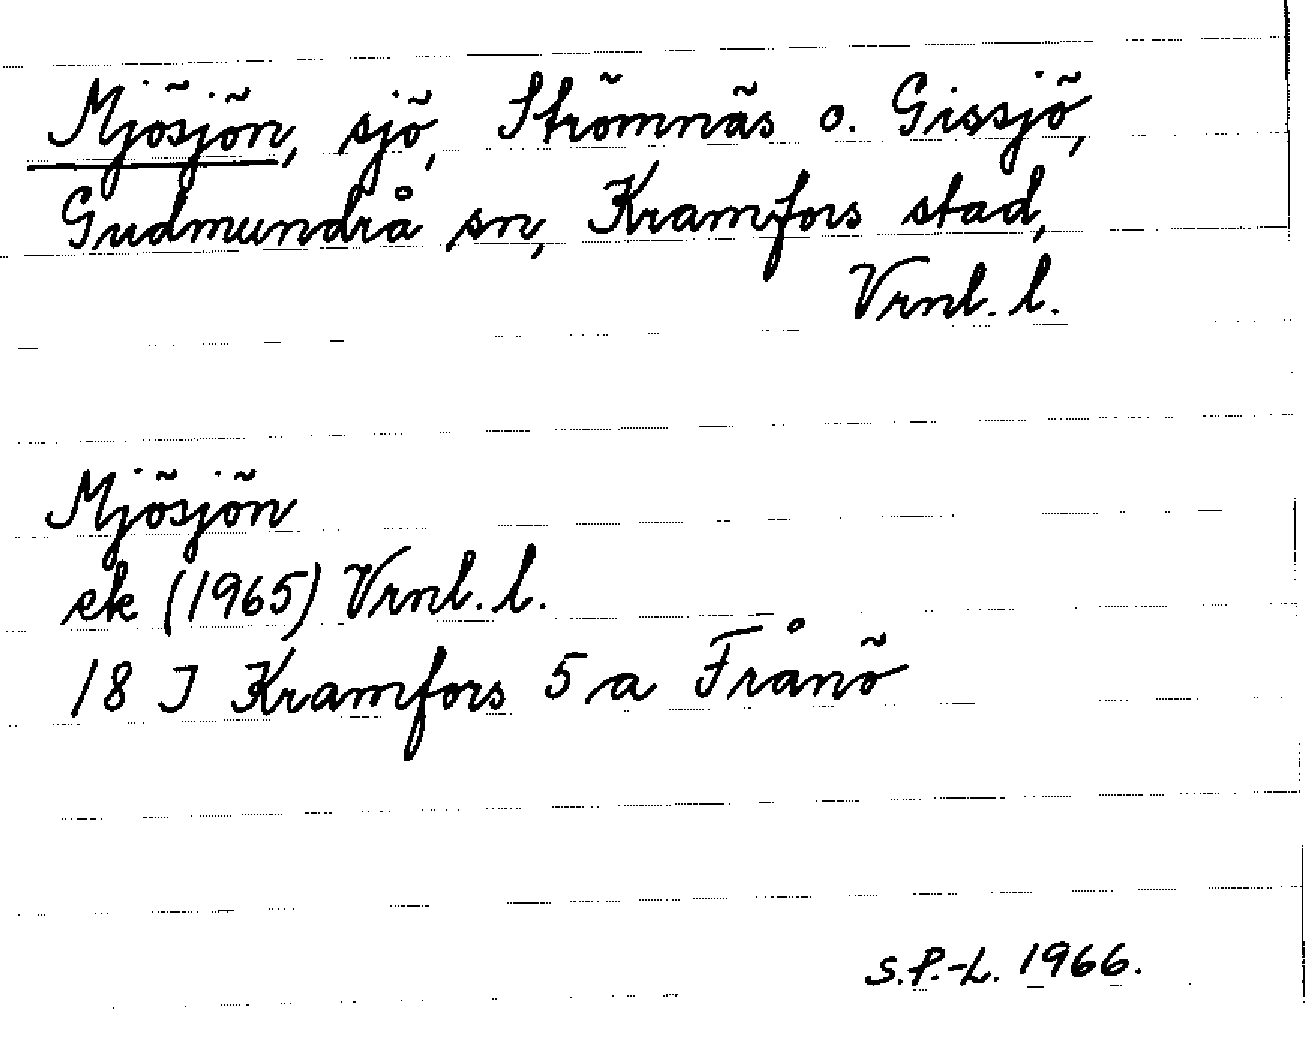 Mjösjön, sjö, Strömnäs o. Gissjö,
Gudmundrå sn, Kramfors stad,
Vrnl. l.
Mjösjön
ek (1965) Vrnl. l.
18 J Kramfors 5 a Frånö
S.P.-L. 1966.